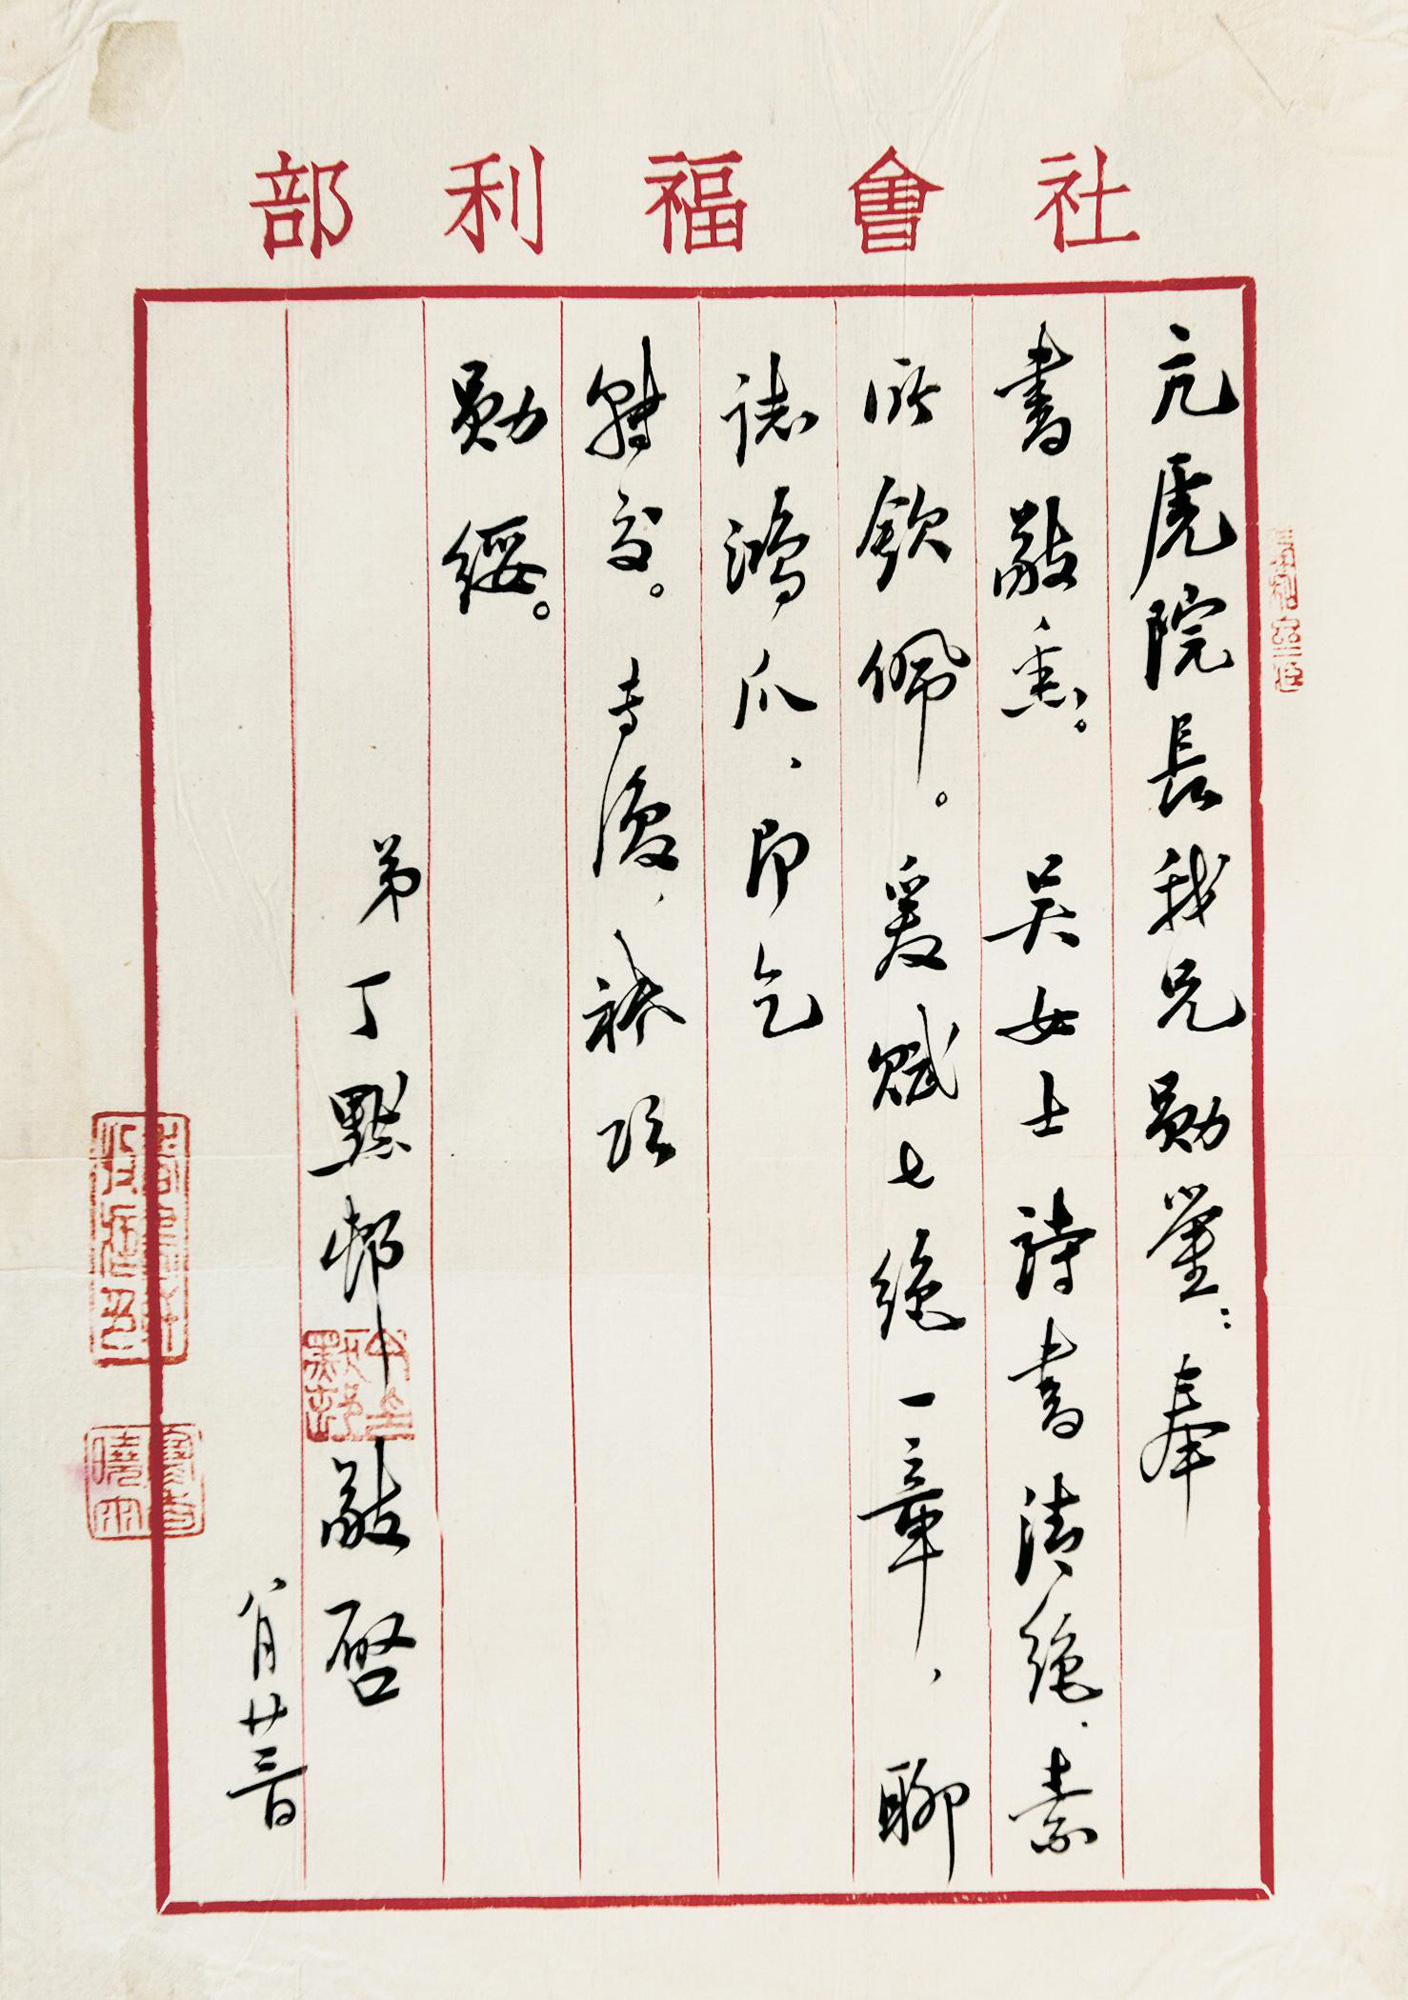 社會福利部
亢虎院長我兄勛鑒：奉
書敬悉。吳女士詩書清絕，素
所欽佩。爰賦七絕一章，聊
誌鴻爪，即乞
轉交。專復，祗頌
勛綏。
弟丁默邨敬啓
八月廿三日